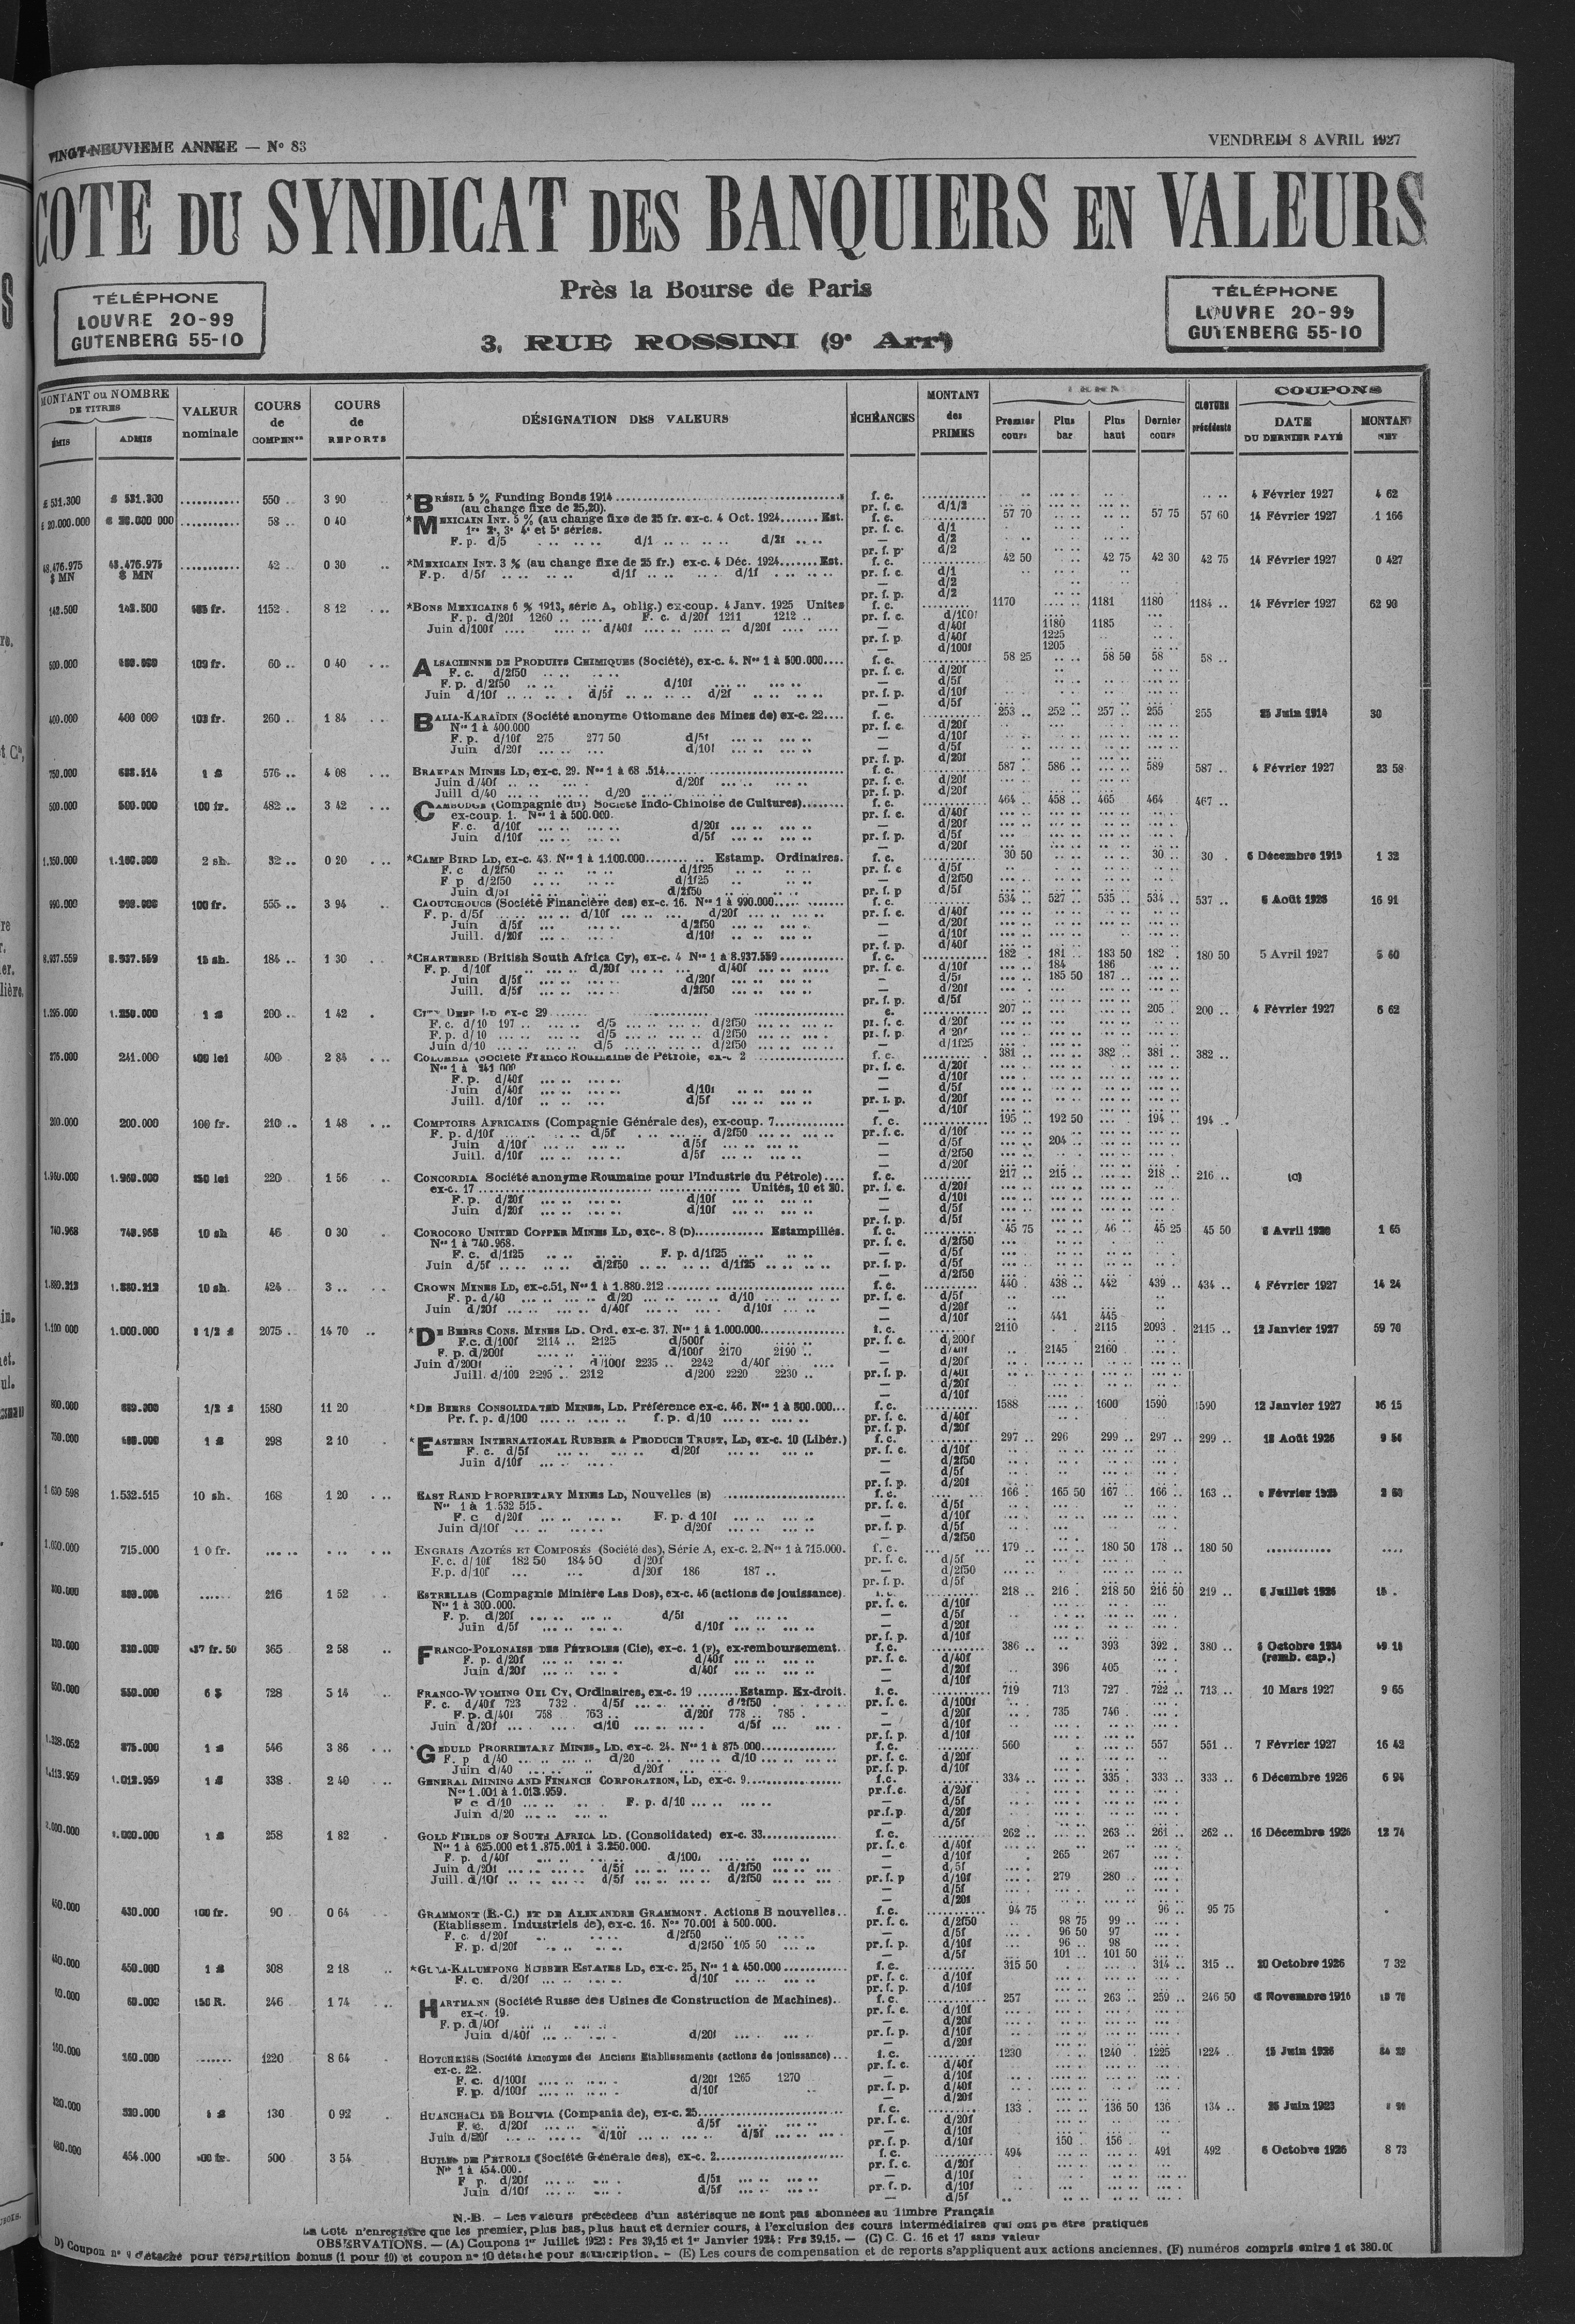 VINGT-NEUVIEME ANNEE — No 83
VENDREDI 8 AVRIL 1927
COTE DU SYNDICAT DES BANQUIERS EN VALEURS
TÉLÉPHONE
LOUVRE 20-99
GUTENBERG 55-10
Près la Bourse de Paris
3, RUE ROSSINI (9e Arrt)
TÉLÉPHONE
LOUVRE 20-99
GUTENBERG 55-10
MONTANT ou NOMBRE DE TITRES
ÉMIS ADMIS
VALEUR nominale
COURS de COMPENon
COURS de REPORTS
DÉSIGNATION DES VALEURS
ÉCHÉANCES
MONTANT des PRIMES
Premier cours
Plus bas
Plus haut
Dernier cours
CLOTURE précédente
COUPONS
DATE DU DERNIER PAYÉ
MONTANT NET
£ 531.300 £ 531.300 ........... 550 .. 3 90 *BRÉSIL 5 % Funding Bonds 1914 f. c. 4 Février 1927 4 62
(au change fixe de 25,20). pr. f. c. d/1/2
£ 20.000.000 ........... 58 .. 0 40 *MEXICAIN INT. 5 % (au change fixe de 25 fr. ex-c. 4 Oct. 1924....... Est. f. c. 57 70 57 75 57 60 14 Février 1927 1 166
1re 2e, 3e 4e et 5e séries. pr. f. c. d/1
F. p. d/5 d/1 d/2f — d/2
pr. f. p. d/2
48.476.975 $ MN 48.476.975 $ MN ........... 42 .. 0 30 *MEXICAIN INT. 3 % (au change fixe de 25 fr.) ex-c. 4 Déc. 1924....... Est. f. c. 42 50 42 75 42 30 42 75 14 Février 1927 0 427
F.p. d/5f d/1f d/1f pr. f. c. d/1
— d/2
pr. f. p. d/2
142.500 142.500 1152 . 8 12 *BONS MEXICAINS 6 % 1913, série A, oblig.) ex-coup. 4 Janv. 1925 Unites f. c. 1170 1181 1180 1184 .. 14 Février 1927 62 90
F. p. d/20f 1260 .. F. c. d/20f 1211 1212 .. pr. f. c. d/100f
Juin d/100f d/40f d/20f — d/40f 1180 1185
pr. f. p. d/40f 1225
— d/100f 1205
500.000 100 fr. 60 .. 0 40 ALSACIENNE DE PRODUITS CHIMIQUES (Société), ex-c. 4. Nos 1 à 500.000.... f. c. 58 25 58 50 58 58 ..
F. c. d/2f50 pr. f. c. d/20f
F. p. d/2f50 d/10f — d/5f
Juin d/10f d/5f d/2f pr. f. p. d/10f
— d/5f
400.000 400 000 103 fr. 260 .. 1 84 BALIA-KARAÏDIN (Société anonyme Ottomane des Mines de) ex-c. 22.... f. c. 253 .. 252 .. 257 .. 255 255 25 Juin 1914 30
Nos 1 à 400.000 pr. f. c. d/20f
F. p. d/10f 275 277 50 d/5f — d/10f
Juin d/20f d/10f — d/5f
pr. f. p. d/20f
750.000 1 £ 576 .. 4 08 BRAKPAN MINES LD, ex-c. 29. f. c. 587 .. 586 .. 589 587 .. 4 Février 1927 23 58
Juin d/40f d/20f pr. f. c. d/20f
Juill d/40 d/20 pr. f. p. d/20f
500.000 500.000 100 fr. 482 .. 3 42 CAMBODGE (Compagnie du) Société Indo-Chinoise de Cultures)........ f. c. 464 .. 458 .. 465 464 467 ..
ex-coup. 1. Nos 1 à 500.000. pr. f. c. d/40f
F. c. d/10f d/20f — d/20f
Juin d/10f d/5f pr. f. p. d/5f
— d/20f
2 sh. 32 .. 0 20 *CAMP BIRD LD, ex-c. 43. Nos 1 à 1.100.000 Estamp. Ordinaires. f. c. 30 50 30 .. 30 . 6 Décembre 1 32
F. c d/2f50 d/1f25 pr. f. c d/5f
F p d/2f50 d/1f25 — d/2f50
Juin d/5f d/2f50 pr. f. p d/5f
990.000 100 fr. 555 .. 3 94 CAOUTCHOUCS (Société Financière des) ex-c. 16. Nos 1 à 990.000 f. c. 534 .. 527 .. 535 .. 534 .. 537 .. 6 Août 1926 16 91
F. p. d/5f d/10f d/20f pr. f. c. d/40f
Juin d/5f d/2f50 — d/20f
Juill. d/20f d/10f — d/10f
pr. f. p. d/40f
8.937.559 8.937.559 15 sh. 184 .. 1 30 *CHARTERED (British South Africa Cy), ex-c. 4 Nos 1 à 8.937.559 f. c. 182 . 181 .. 183 50 182 . 180 50 5 Avril 1927 5 60
F. p. d/10f d/20f d/40f pr. f. c. d/10f 184 186
Juin d/5f d/20f — d/5f 185 50 187 ..
Juill. d/5f d/2f50 — d/20f
pr. f. p. d/5f
1.295.000 1.250.000 1 £ 200 .. 1 42 CITY DEEP LD ex-c 29 207 .. 205 . 200 .. 4 Février 1927 6 62
F. c. d/10 197 .. d/5 d/2f50 pr. f. c. d/20f
F. p. d/10 d/5 d/2f50 pr. f. p. d/20f
Juin d/10 d/5 d/2f50 — d/1f25
275.000 241.000 100 lei 400 2 84 COLUMBIA (Société Franco Roumaine de Pétrole, ex-c 2 f. c. 381 .. 382 .. 381 .. 382 ..
Nos 1 à 241 000 pr. f. c. d/20f
F. p. d/40f — d/10f
Juin d/40f d/10f — d/5f
Juill. d/10f d/5f pr. f. p. d/20f
— d/10f
200.000 200.000 100 fr. 210 .. 1 48 COMPTOIRS AFRICAINS (Compagnie Générale des), ex-coup. 7 f. c. 195 .. 192 50 194 .. 194 ..
F. p. d/10f d/5f d/2f50 pr. f. c. d/10f
Juin d/10f d/5f — d/5f 204 ..
Juill. d/10f d/5f — d/2f50
— d/20f
1.960.000 1.960.000 250 lei 220 1 56 CONCORDIA Société anonyme Roumaine pour l'Industrie du Pétrole).... f. c. 217 .. 215 .. 218 .. 216 .. (C)
ex-c. 17 Unités, 10 et 20. pr. f. c. d/20f
F. p. d/20f d/10f — d/10f
Juin d/20f d/10f — d/5f
pr. f. p. d/5f
740.968 740.968 10 sh 46 0 30 COROCORO UNITED COPPER MINES LD, exc-. 8 (D) Estampillés. f. c. 45 75 46 .. 45 25 45 50 Avril 1 65
Nos 1 à 740.968. pr. f. c. d/2f50
F. c. d/1f25 F. p. d/1f25 — d/5f
Juin d/5f d/2f50 d/1f25 pr. f. p. d/5f
— d/2f50
1.880.212 1.880.212 10 sh. 424 .. 3 .. CROWN MINES LD, ex-c.51, Nos 1 à 1.880.212 f. c. 440 . 438 .. 442 439 .. 434 .. 4 Février 1927 14 24
F. p. d/40 d/20 d/10 pr. f. c. d/5f
Juin d/20f d/40f d/10f — d/20f
— d/10f 441 445
1.100 000 1.000.000 2 1/2 £ 2075 .. 14 70 *DE BEERS CONS. MINES LD. Ord. ex-c. 37. Nos 1 à 1.000.000 f. c. 2110 2115 2093 . 2115 .. 12 Janvier 1927 59 70
F.c. d/100f 2114 .. 2125 d/500f pr. f. c. d/200f
F. p. d/200f d/100f 2170 2190 .. — d/40f 2145 2160
Juin d/200f d/100f 2235 .. 2242 d/40f — d/20f
Juill. d/100 2295 .. 2312 d/200 2220 2230 .. pr. f. p. d/40f
— d/20f
— d/10f
800.000 1/2 £ 1580 11 20 *DE BEERS CONSOLIDATED MINES, LD. Préférence ex-c. 46. Nos 1 à 800.000... f. c. 1588 1600 1590 1590 12 Janvier 1927 36 15
Pr. f. p. d/100 f. p. d/10 pr. f. c. d/40f
pr. f. p. d/20f
750.000 1 £ 298 2 10 *EASTERN INTERNATIONAL RUBBER & PRODUCE TRUST, LD, ex-c. 10 (Libér.) f. c. 297 .. 296 299 .. 297 .. 299 .. 18 Août 1926
F. c. d/5f d/20f pr. f. c. d/10f
Juin d/10f — d/2f50
— d/5f
pr. f. p. d/20f
1.532.515 10 sh. 168 1 20 EAST RAND PROPRIETARY MINES LD, Nouvelles (E) f. c. 166 . 165 50 167 .. 166 .. 163 .. Février
Nos 1 à 1.532 515. pr. f. c. d/5f
F. c d/20f F. p. d 10f — d/10f
Juin d/10f d/20f pr. f. p. d/5f
— d/2f50
715.000 1 0 fr. ENGRAIS AZOTÉS ET COMPOSÉS (Société des), Série A, ex-c. 2. Nos 1 à 715.000. f. c. 179 .. 180 50 178 .. 180 50
F. c. d/10f 182 50 184 50 d/20f pr. f. c. d/5f
F.p. d/10f d/20f 186 187 .. — d/2f50
pr. f. p. d/5f
216 1 52 ESTRELLAS (Compagnie Minière Las Dos), ex-c. 46 (actions de jouissance). 218 .. 216 . 218 50 216 50 219 .. 6 Juillet 1926 15 .
Nos 1 à 300.000. pr. f. c. d/10f
F. p. d/20f d/5f — d/5f
Juin d/5f d/10f — d/20f
pr. f. p. d/10f
330.000 330.000 437 fr. 50 365 2 58 FRANCO-POLONAISE DES PÉTROLES (Cie), ex-c. 1 (F), ex-remboursement. f. c. 386 .. 393 392 . 380 .. Octobre
F. p. d/20f d/40f pr. f. c. d/40f (remb. cap.)
Juin d/20f d/40f — d/20f 396 405
— d/10f
550.000 550.000 6 $ 728 5 14 FRANCO-WYOMING OIL CY, Ordinaires, ex-c. 19 ........Estamp. Ex-droit. f. c. 719 713 727 . 722 .. 713 .. 10 Mars 1927 9 65
F. c. d/40f 723 732 . d/5f d/2f50 pr. f. c. d/100f
F. p. d/40f 758 763 .. d/20f 778 .. 785 . — d/20f 735 746 .
Juin d/20f d/10 d/5f — d/10f
pr. f. p. d/10f
875.000 1 £ 546 3 86 *GEDULD PROPRIETARY MINES, LD. ex-c. 24. Nos 1 à 875.000 f. c. 560 557 551 .. 7 Février 1927 16 42
F. p d/40 d/20 d/10 pr. f. c. d/20f
Juin d/40 d/20f pr. f. p. d/10f
1.113.959 1.013.959 1 £ 338 . 2 40 GENERAL MINING AND FINANCE CORPORATION, LD, ex-c. 9 f.c. 334 .. 335 . 333 .. 333 .. 6 Décembre 1926 6 94
Nos 1.001 à 1.013.959. pr.f.c. d/20f
F c d/10 F. p. d/10 — d/5f
Juin d/20 pr.f.p. d/20f
— d/5f
1 £ 258 1 82 GOLD FIELDS OF SOUTH AFRICA LD. (Consolidated) ex-c. 33 f. c. 262 .. 263 .. 261 .. 262 .. 16 Décembre 1926 12 74
Nos 1 à 625.000 et 1.875.001 à 3.250.000. pr. f. c d/40f
F. p. d/40f d/100f — d/10f 265 267
Juin d/20f d/5f d/2f50 — d/5f
Juill. d/10f d/5f d/2f50 pr. f. p d/10f 279 280
— d/5f
— d/20f
430.000 100 fr. 90 0 64 GRAMMONT (E.-C.) ET DE ALEXANDRE GRAMMONT. Actions B nouvelles.. f. c. 94 75 96 .. 95 75
(Etablissem. Industriels de), ex-c. 16. Nos 70.001 à 500.000. pr. f. c. d/2f50 98 75 99 ..
F. c. d/20f d/2f50 — d/5f 96 50 97
F. p. d/20f d/2f50 105 50 pr. f. p. d/10f 96 .. 98
— d/5f 101 .. 101 50
450.000 450.000 1 £ 308 2 18 *GULA-KALUMPONG RUBBER ESTATES LD, ex-c. 25, Nos 1 à 450.000 f. c. 315 50 314 .. 315 .. 20 Octobre 1926 7 32
F. c. d/20f d/10f pr. f. c. d/10f
pr. f. p. d/10f
60.000 60.000 150 R. 246 1 74 HARTMANN (Société Russe des Usines de Construction de Machines).. f. c. 257 263 .. 259 .. 246 50 Novembre 1916
ex-c. 19. pr. f. c. d/10f
F. p. d/40f — d/20f
Juin d/40f d/20f pr. f. p. d/10f
— d/20f
160.000 160.000 1220 8 64 HOTCHKISS (Société Anonyme des Anciens Etablissements (actions de jouissance)... f. c. 1230 1240 .. 1225 1224 .. 15 Juin 1926
ex-c. 22. pr. f. c. d/40f
F. c. d/100f d/20f 1265 1270 — d/10f
F. p. d/100f d/10f pr. f. p. d/40f
— d/20f
320.000 130 0 92 HUANCHACA DE BOLIVIA (Compania de), ex-c. 25 f. c. 133 . 136 50 136 134 .. 25 Juin 1923
F. c. d/20f d/5f pr. f. c. d/20f
Juin d/20f d/10f d/5f — d/10f
pr. f. p. d/10f 150 . 156
480.000 454.000 100 fr. 500 3 54 HUILES DE PETROLE (Société Générale des), ex-c. 2 f. c. 494 491 492 . 6 Octobre 1926 8 73
Nos 1 à 454.000. pr. f. c. d/20f
F p. d/20f d/5f — d/10f
Juin d/10f d/5f pr. f. p. d/10f
— d/5f
N.-B. – Les valeurs précédées d'un astérisque ne sont pas abonnées au Timbre Français
La Cote n'enregistre que les premier, plus bas, plus haut et dernier cours, à l'exclusion des cours intermédiaires qui ont pu être pratiqués
OBSERVATIONS. — (A) Coupons 1er Juillet 1923: Frs 39,15 et 1er Janvier 1924: Frs 39,15. — (C) C. C. 16 et 17 sans valeur
D) Coupon no 9 détaché pour répartition bonus (1 pour 10) et coupon no 10 détaché pour souscription. – (E) Les cours de compensation et de reports s'appliquent aux actions anciennes. (F) numéros compris entre 1 et 380.00